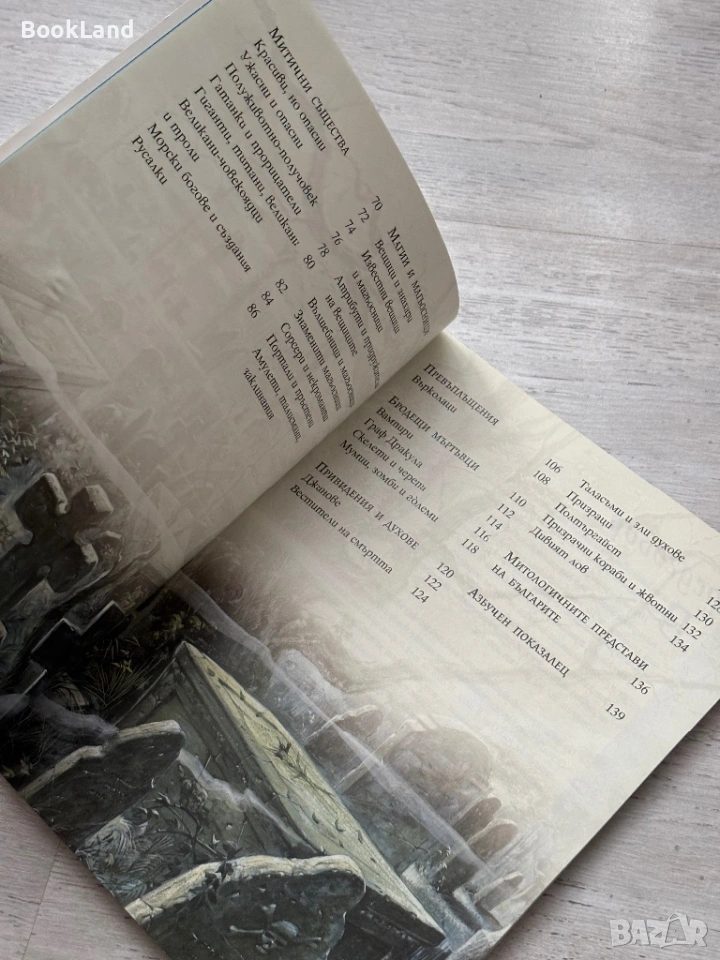 BookLand
МИТИЧНИ СЪЩЕСТВА
Красиви, но опасни 70
Ужасни и опасни 72
Полуживотно-получовек 74
Гатанки и прорицатели 76
Гиганти, титани, великани 78
Великани-човекоядци
и троли 80
Морски богове и създания 82
Русалки 84
86
МАГИИ И МАГЬОСНИЦИ
Вещици и знахари
Известни вещици
и магьосници
Атрибути и придружители
на вещиците
Вълшебници и магьосници
Знаменити магьосници
Сорсери и некроманти
Портали и пръстени
Амулети, талисмани,
заклинания
ПРЕВЪПЛЪЩЕНИЯ 106
Върколаци 108
БРОДЕЩИ МЪРТЪВЦИ 110
Вампири 112
Граф Дракула 114
Скелети и черепи 116
Мумии, зомби и големи 118
ПРИВИДЕНИЯ И ДУХОВЕ 120
Джанове 122
Вестители на смъртта 124
Таласъми и зли духове
Призраци
Полтъргайст 130
Призрачни кораби и животни 132
Дивият лов 134
МИТОЛОГИЧНИТЕ ПРЕДСТАВИ
НА БЪЛГАРИТЕ 136
АЗБУЧЕН ПОКАЗАЛЕЦ 139
BAZAR